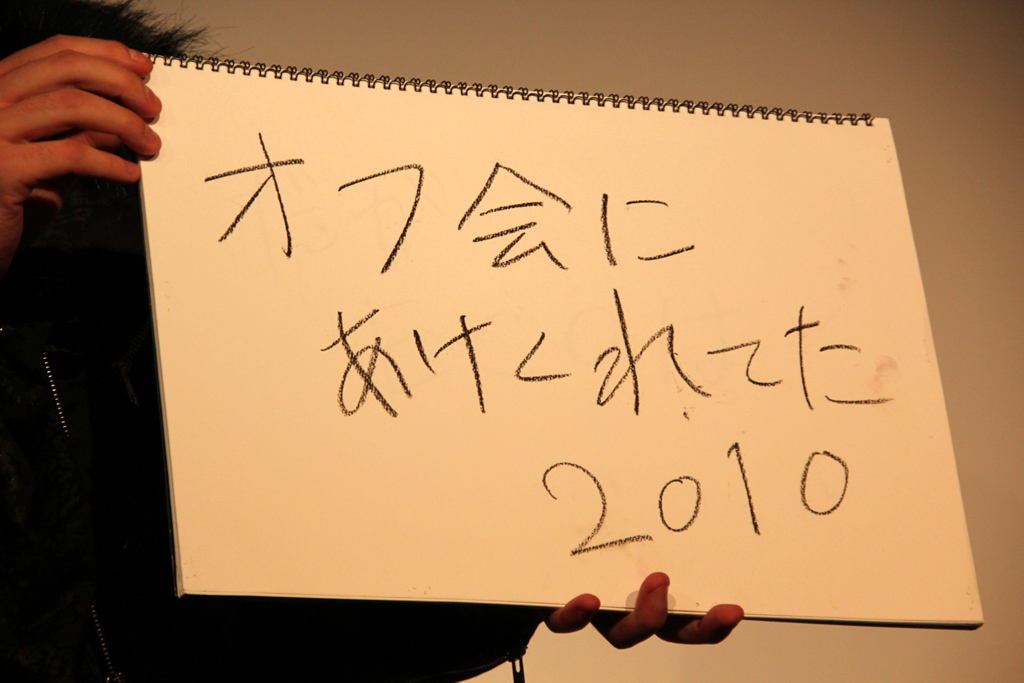 オフ会に
あけくれてた
2010